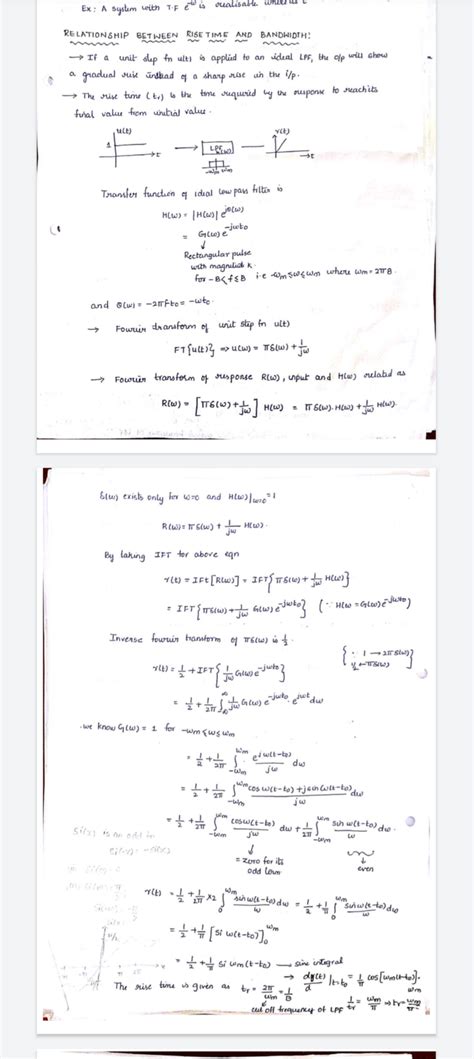 Ex: A system with T.F e^-ω is realisable
RELATIONSHIP BETWEEN RISETIME AND BANDWIDTH:
→ If a unit step fn u(t) is applied to an ideal LPF, the o/p will show
a gradual rise instead of a sharp rise in the i/p.
→ The rise time (tr) is the time required by the response to reach its
final value from initial value.
u(t)
1
→t
→
LPF
H(ω)
-ωm ωm
→
r(t)
→t
Transfer function of ideal low pass filter is
H(ω) = |H(ω)| e^jθ(ω)
= G(ω) e^-jωto
↓
Rectangular pulse
with magnitude k.
for -B<f≤B i.e -ωm≤ω≤ωm where ωm = 2πB.
and θ(ω) = -2πfto = -ωto.
→ Fourier transform of unit step fn u(t)
FT{u(t)} => u(ω) = πδ(ω) + 1/jω
→ Fourier transform of response R(ω), input and H(ω) related as
R(ω) = [πδ(ω)+1/jω] H(ω) = πδ(ω).H(ω) + 1/jω H(ω).
δ(ω) exists only for ω=0 and H(ω)|ω=0 = 1
R(ω) = πδ(ω) + 1/jω H(ω).
By taking IFT for above eqn
r(t) = IFt[R(ω)] = IFT{πδ(ω) + 1/jω H(ω)}
= IFT{πδ(ω)+1/jω G(ω) e^-jωto} (∵ H(ω) = G(ω)e^-jωto)
Inverse fourier transform of πδ(ω) is 1/2.
{∵ 1→2πδ(ω)
1/2 ← πδ(ω)}
r(t) = 1/2 + IFT{1/jω G(ω) e^-jωto}
= 1/2 + 1/2π ∫_-∞^∞ 1/jω G(ω) e^-jωto. e^jωt dω
we know G(ω) = 1 for -ωm≤ω≤ωm
= 1/2 + 1/2π ∫_-ωm^ωm e^jω(t-to)/jω dω
= 1/2 + 1/2π ∫_-ωm^ωm cosω(t-to)+jsinω(t-to)/jω dω
= 1/2 + 1/2π ∫_-ωm^ωm cosω(t-to)/jω dω + 1/2π ∫_-ωm^ωm sinω(t-to)/ω dω.
↓
= zero for its
odd fown
↓
even
r(t) = 1/2 + 1/2π ×2 ∫_0^ωm sinω(t-to)/ω dω = 1/2 + 1/π ∫_0^ωm sinω(t-to)/ω dω
= 1/2 + 1/π [Si ω(t-to)]_0^ωm
= 1/2 + 1/π Si ωm(t-to) → sine integral
The rise time is given as tr = 2π/ωm = 1/B
→ dr(t)/dt |t=to = 1/π cos[ωm(t-to)].ωm
cut off frequency of LPF
1/tr = ωm/π => tr = ωm/π